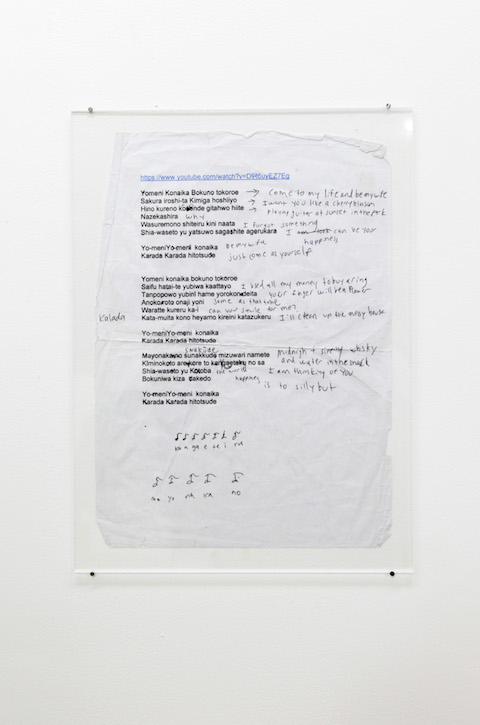 https://www.youtube.com/watch?v=D9t6uyEZ7Eg
Yomeni Konaika Bokuno tokoroe → Come to my life and be my wife
Sakura iroshi-ta Kimiga hoshiiyo → I want you like a cherry blossom
Hino kureno koshinde gitahwo hiite → playing guitar at sunset in the park
Nazekashira why
Wasuremono shiteiru kini naata I forgot something
Shia-waseto yu yatsuwo sagashite agerukara I can be your happiness
Yo-meniYo-meni konaika be my wife
Karada Karada hitotsude just come as yourself
Yomeni konaika bokuno tokoroe
Saifu hatai-te yubiwa kaattayo I used all my money to buy a ring
Tanpopowo yubini hame yorokondeita your finger will be a flower
Anokoroto onaji yoni same as that time
Waratte kureru kai can you smile for me?
Kata-muita kono heyamo kireini katazukeru I'll clean up the messy house
Karada
Yo-meniYo-meni konaika
Karada Karada hitotsude
snakude
Mayonakano sunakkude mizuwari namete midnight + smelly whisky
KIminokoto arekore to kangaetaku no sa and water in the snack
Shia-waseto yu Kotoba the world happiness I am thinking of you
Bokuniwa kiza dakedo is to silly but
Yo-meniYo-meni konaika
Karada Karada hitotsude
ka n ga e te i ru
no